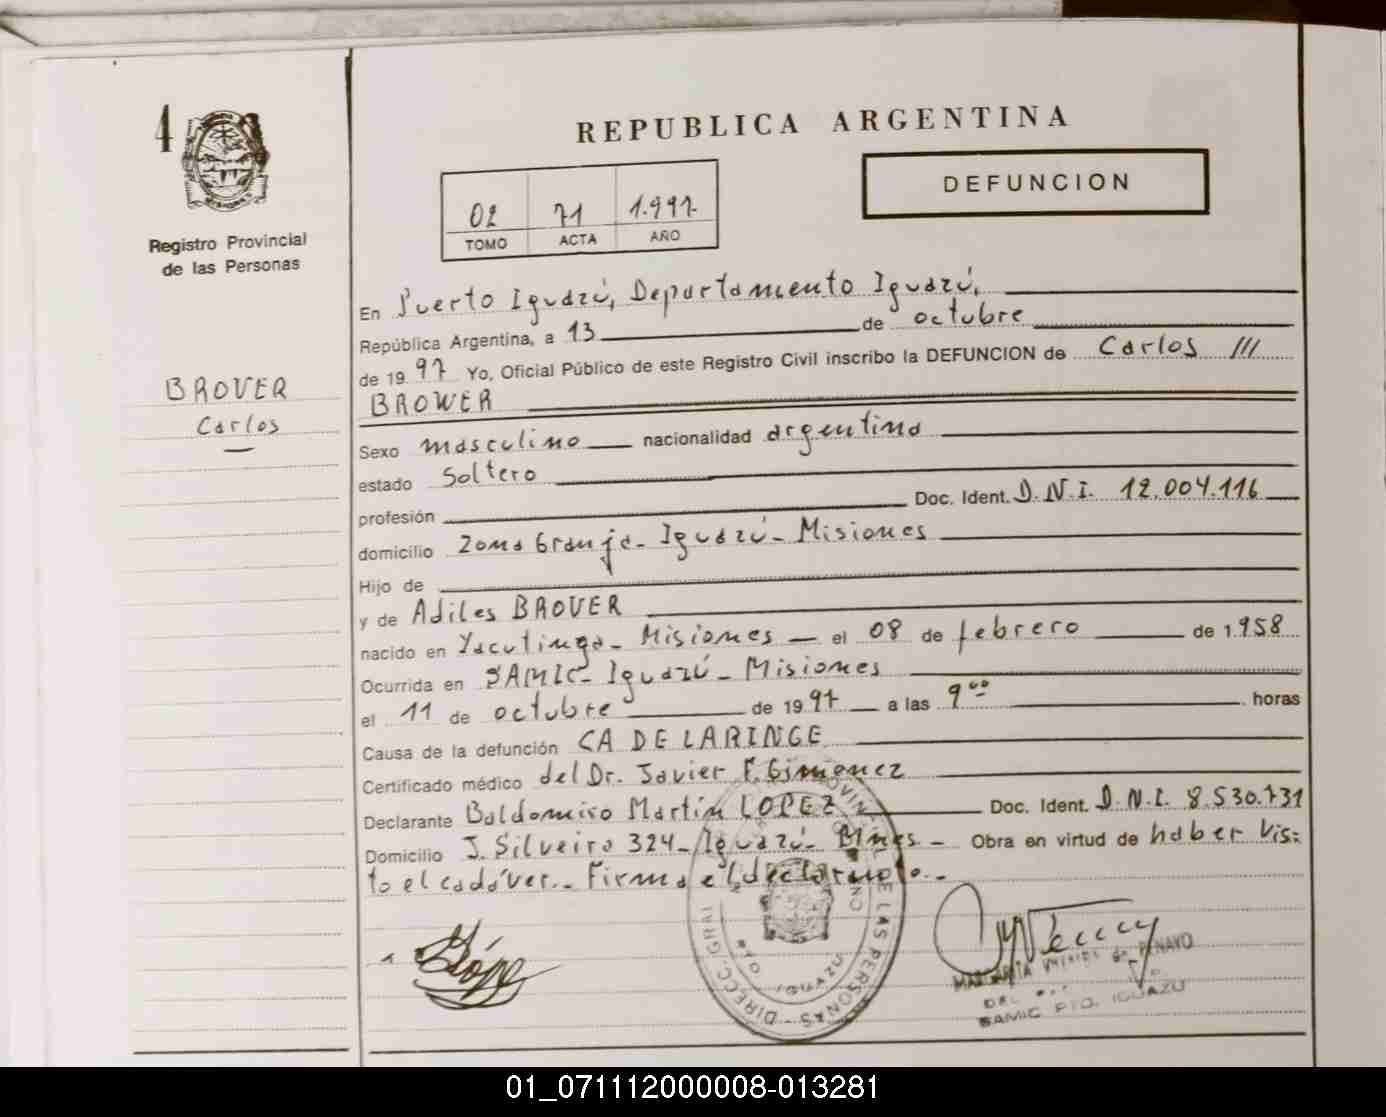 4
Registro Provincial
de las Personas
BROVER
Carlos
REPUBLICA ARGENTINA
02 71 1.997.
TOMO ACTA AÑO
DEFUNCION
En Puerto Iguazú, Departamento Iguazú,
República Argentina, a 13 de octubre
de 1997 Yo, Oficial Público de este Registro Civil inscribo la DEFUNCION de Carlos ///
BROWER
Sexo masculino nacionalidad argentina
estado Soltero
profesión Doc. Ident. D.N.I. 12.004.116
domicilio Zona Granja- Iguazú- Misiones
Hijo de
y de Adiles BROVER
nacido en Yacutinga- Misiones - el 08 de febrero de 1.958
Ocurrida en SAMIC- Iguazú- Misiones
el 11 de octubre de 1997 a las 9 00 horas
Causa de la defunción CA DE LARINGE
Certificado médico del Dr. Javier F. Gimenez
Declarante Baldomiro Martín LOPEZ Doc. Ident. D.N.I. 8.530.731
Domicilio J. Silveira 324- Iguazú- Mnes - Obra en virtud de haber vis=
to el cadáver.- Firma el declarante.-
DIRECC. GRAL PROVINCIAL DE LAS PERSONAS
PTO. IGUAZU
MARGARITA de PENAYO
SAMIC PTO. IGUAZU
01_071112000008-013281